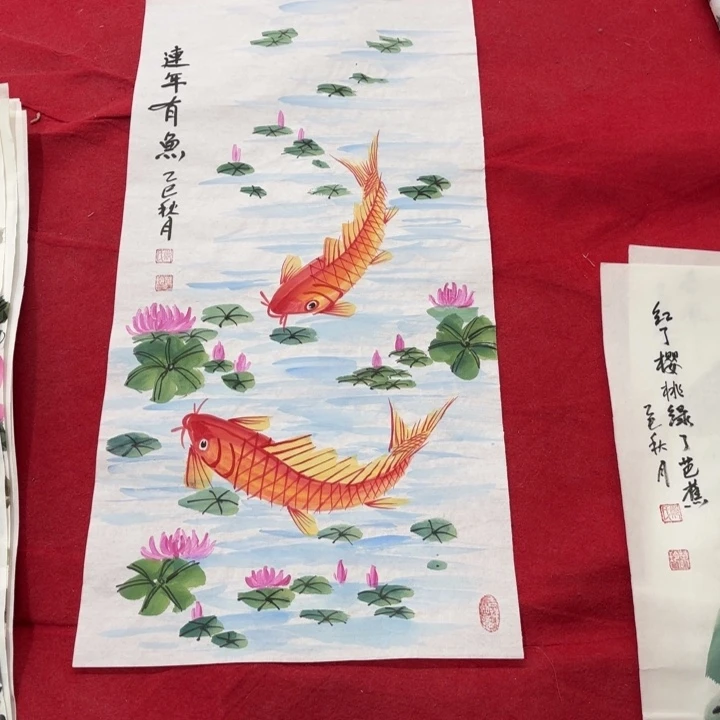 連年有魚
乙巳秋月
紅了櫻桃綠了芭蕉
乙巳秋月